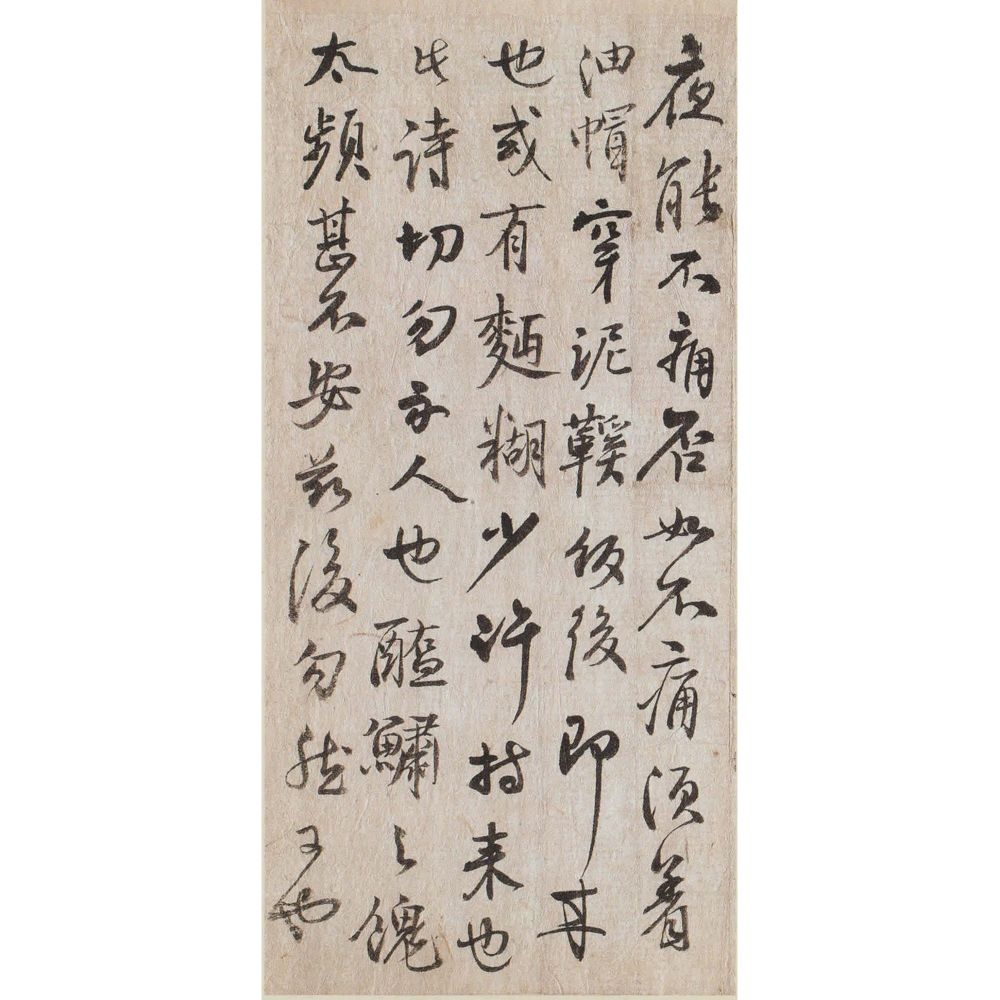 夜能不痛否如不痛須着
油帽穿泥鞵飯後即再
也或有麵糊少許持来也
此詩切勿示人也醢鱐之餽
太頻甚不安茲後勿然可也